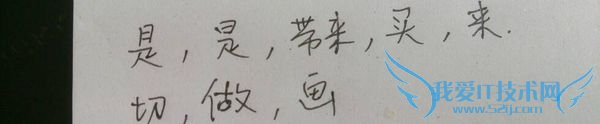 是，是，带来，买，来.
切，做，画
我爱IT技术网
www.52ij.com